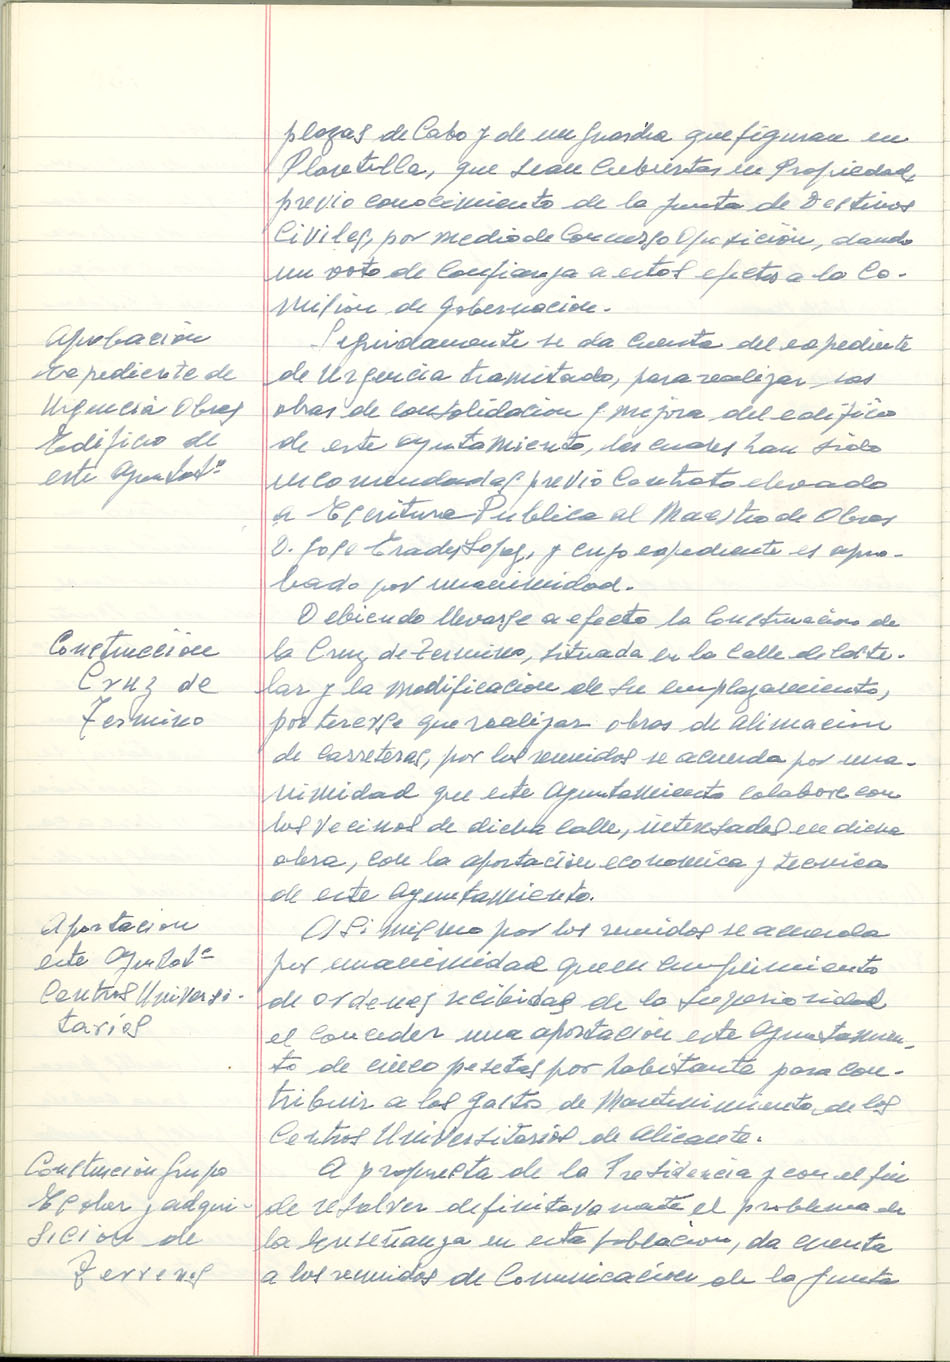 plazas de Cabo y de un Guardia que figuran en
Plantilla, que sean cubiertas en Propiedad,
previo conocimiento de la Junta de Destinos
Civiles, por medio de Concurso Oposición, dando
un voto de Confianza a estos efectos a la Co-
misión de Gobernación.
Aprobación
Expediente de
Urgencia Obras
Edificio de
este Ayuntatº
Seguidamente se da cuenta del expediente
de Urgencia tramitado, para realizar las
obras de consolidacion y mejora del edificio
de este Ayuntamiento, las cuales han sido
encomendadas previo Contrato elevado
a Escritura Publica al Maestro de Obras
D. Jose Prades Lopez, y cuyo expediente es apro-
bado por unanimidad.
Construcción
Cruz de
Termino
Debiendo llevarse a efecto la Construcion de
la Cruz de Termino, situada en la Calle de Caste-
lar y la modificacion de su emplazamiento,
por tenerse que realizar obras de alineacion
de carreteras, por los reunidos se acuerda por una-
nimidad que este Ayuntamiento colabore con
los vecinos de dicha Calle, interesados en dicha
obra, con la aportación economica y tecnica
de este Ayuntamiento.
Aportacion
este Ayuntatº
Centros Universi-
tarios
Asi mismo por los reunidos se acuerda
por unanimidad que en cumplimiento
de ordenes recibidas de la Superioridad
el conceder una aportación este Ayuntamien-
to de cinco pesetas por habitante para con-
tribuir a los gastos de Mantenimiento, de los
Centros Universitarios de Alicante.
Construción Grupo
Escolar y adqui-
sicion de
Terrenos
A propuesta de la Presidencia y con el fin
de resolver definitivamente el problema de
la Enseñanza en esta población, da cuenta
a los reunidos de Comunicacion de la Junta